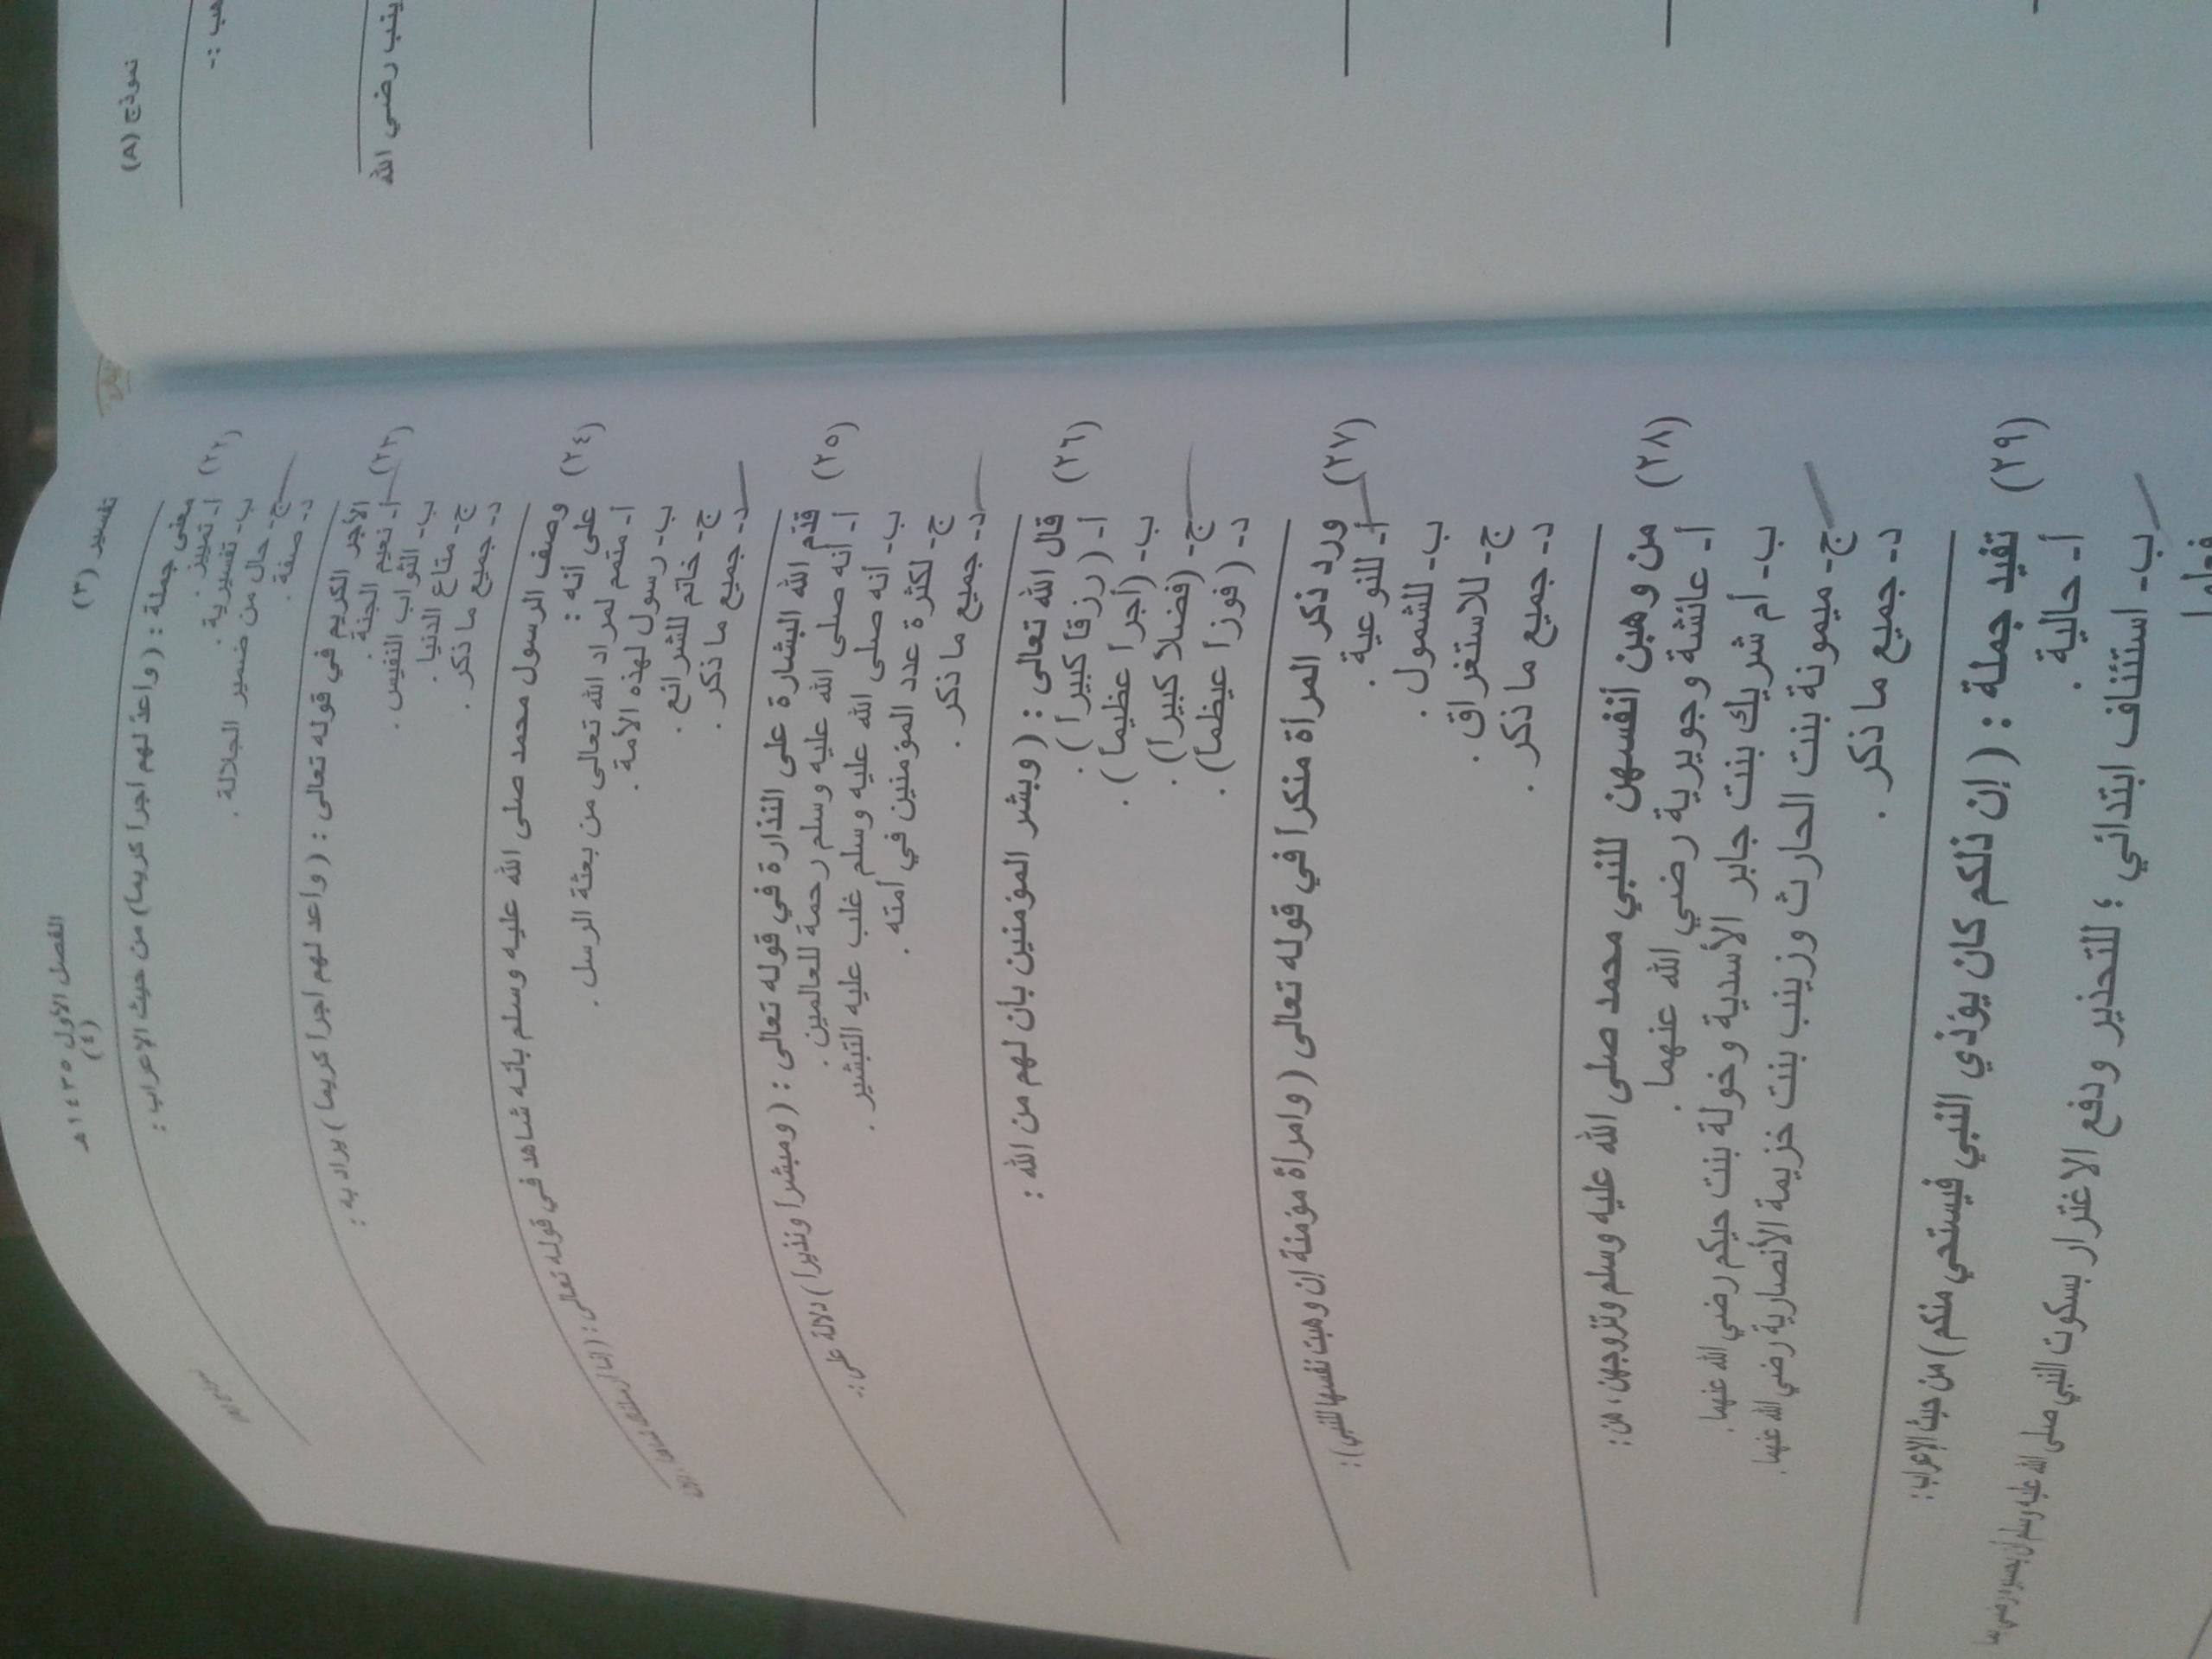 تفسير (٣)
الفصل الأول ١٤٣٥هـ
(٤)
نموذج (A)
(٢٢) معنى جملة : (واعد لهم اجرا كريما) من حيث الاعراب :
أ- تمييز .
ب- تفسيرية .
ج- حال من ضمير الجلالة .
د- صفة .
(٢٣) الأجر الكريم في قوله تعالى : (واعد لهم اجرا كريما) يراد به :
أ- نعيم الجنة .
ب- الثواب النفيس .
ج- متاع الدنيا .
د- جميع ما ذكر .
(٢٤) وصف الرسول محمد صلى الله عليه وسلم بأنه شاهد في قوله تعالى : (إنا أرسلناك شاهدا
على أنه :
أ- متمم لمراد الله تعالى من بعثة الرسل .
ب- رسول لهذه الأمة .
ج- خاتم للشرائع .
د- جميع ما ذكر .
(٢٥) قدم الله البشارة على النذارة في قوله تعالى : (ومبشرا ونذيرا) دلالة على :
أ- أنه صلى الله عليه وسلم رحمة للعالمين .
ب- أنه صلى الله عليه وسلم غلب عليه التبشير .
ج- لكثرة عدد المؤمنين في أمته .
د- جميع ما ذكر .
(٢٦) قال الله تعالى : (وبشر المؤمنين بأن لهم من الله :
أ- (رزقاً كبيراً) .
ب- (أجراً عظيماً) .
ج- (فضلاً كبيراً) .
د- (فوزاً عيظما) .
(٢٧) ورد ذكر المرأة منكراً في قوله تعالى (وامرأة مؤمنة إن وهبت نفسها للنبي) :
أ- للنوعية .
ب- للشمول .
ج- للاستغراق .
د- جميع ما ذكر .
(٢٨) من وهبن أنفسهن للنبي محمد صلى الله عليه وسلم وتزوجهن، هن :
أ- عائشة وجويرية رضي الله عنهما .
ب- أم شريك بنت جابر الأسدية وخولة بنت حيكم رضي الله عنهما .
ج- ميمونة بنت الحارث وزينب بنت خزيمة الأنصارية رضي الله عنهما .
د- جميع ما ذكر .
(٢٩) تفيد جملة : (إن ذلكم كان يؤذي النبي فيستحي منكم) من حيث الإعراب :
أ- حالية .
ب- استئناف ابتدائي ؛ للتحذير ودفع الاغترار بسكوت النبي صلى الله عليه وسلم أن
هب :-
ينب رضي الله